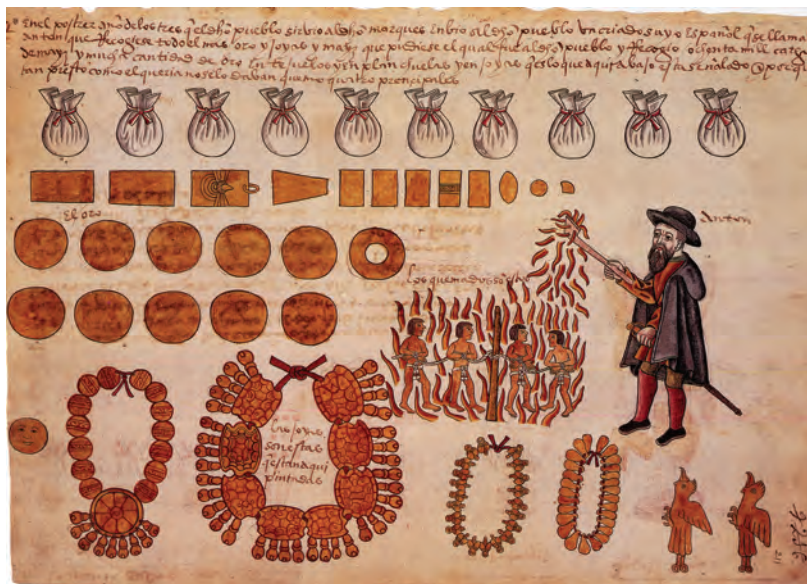 En el postrer año de los tres q̃ el dho pueblo sirvio al dho marques Enbio al dho pueblo Un criado suyo Español q̃ se llama
anton que Recogiese todo el mas oro y joyas y mayz que pudiese el qual fue al dho pueblo y Recogio ochenta mill cargas
de mayz y mucha cantidad de oro En tejuelos y en planchuelas y en joyas ques lo que aqui abajo esta señalado y porq̃
tan presto como el queria no se lo daban quemo quatro prencipales
El oro
Anton
Los quemados son estos
Las joyas
son estas
q̃ estan aqui
pintadas